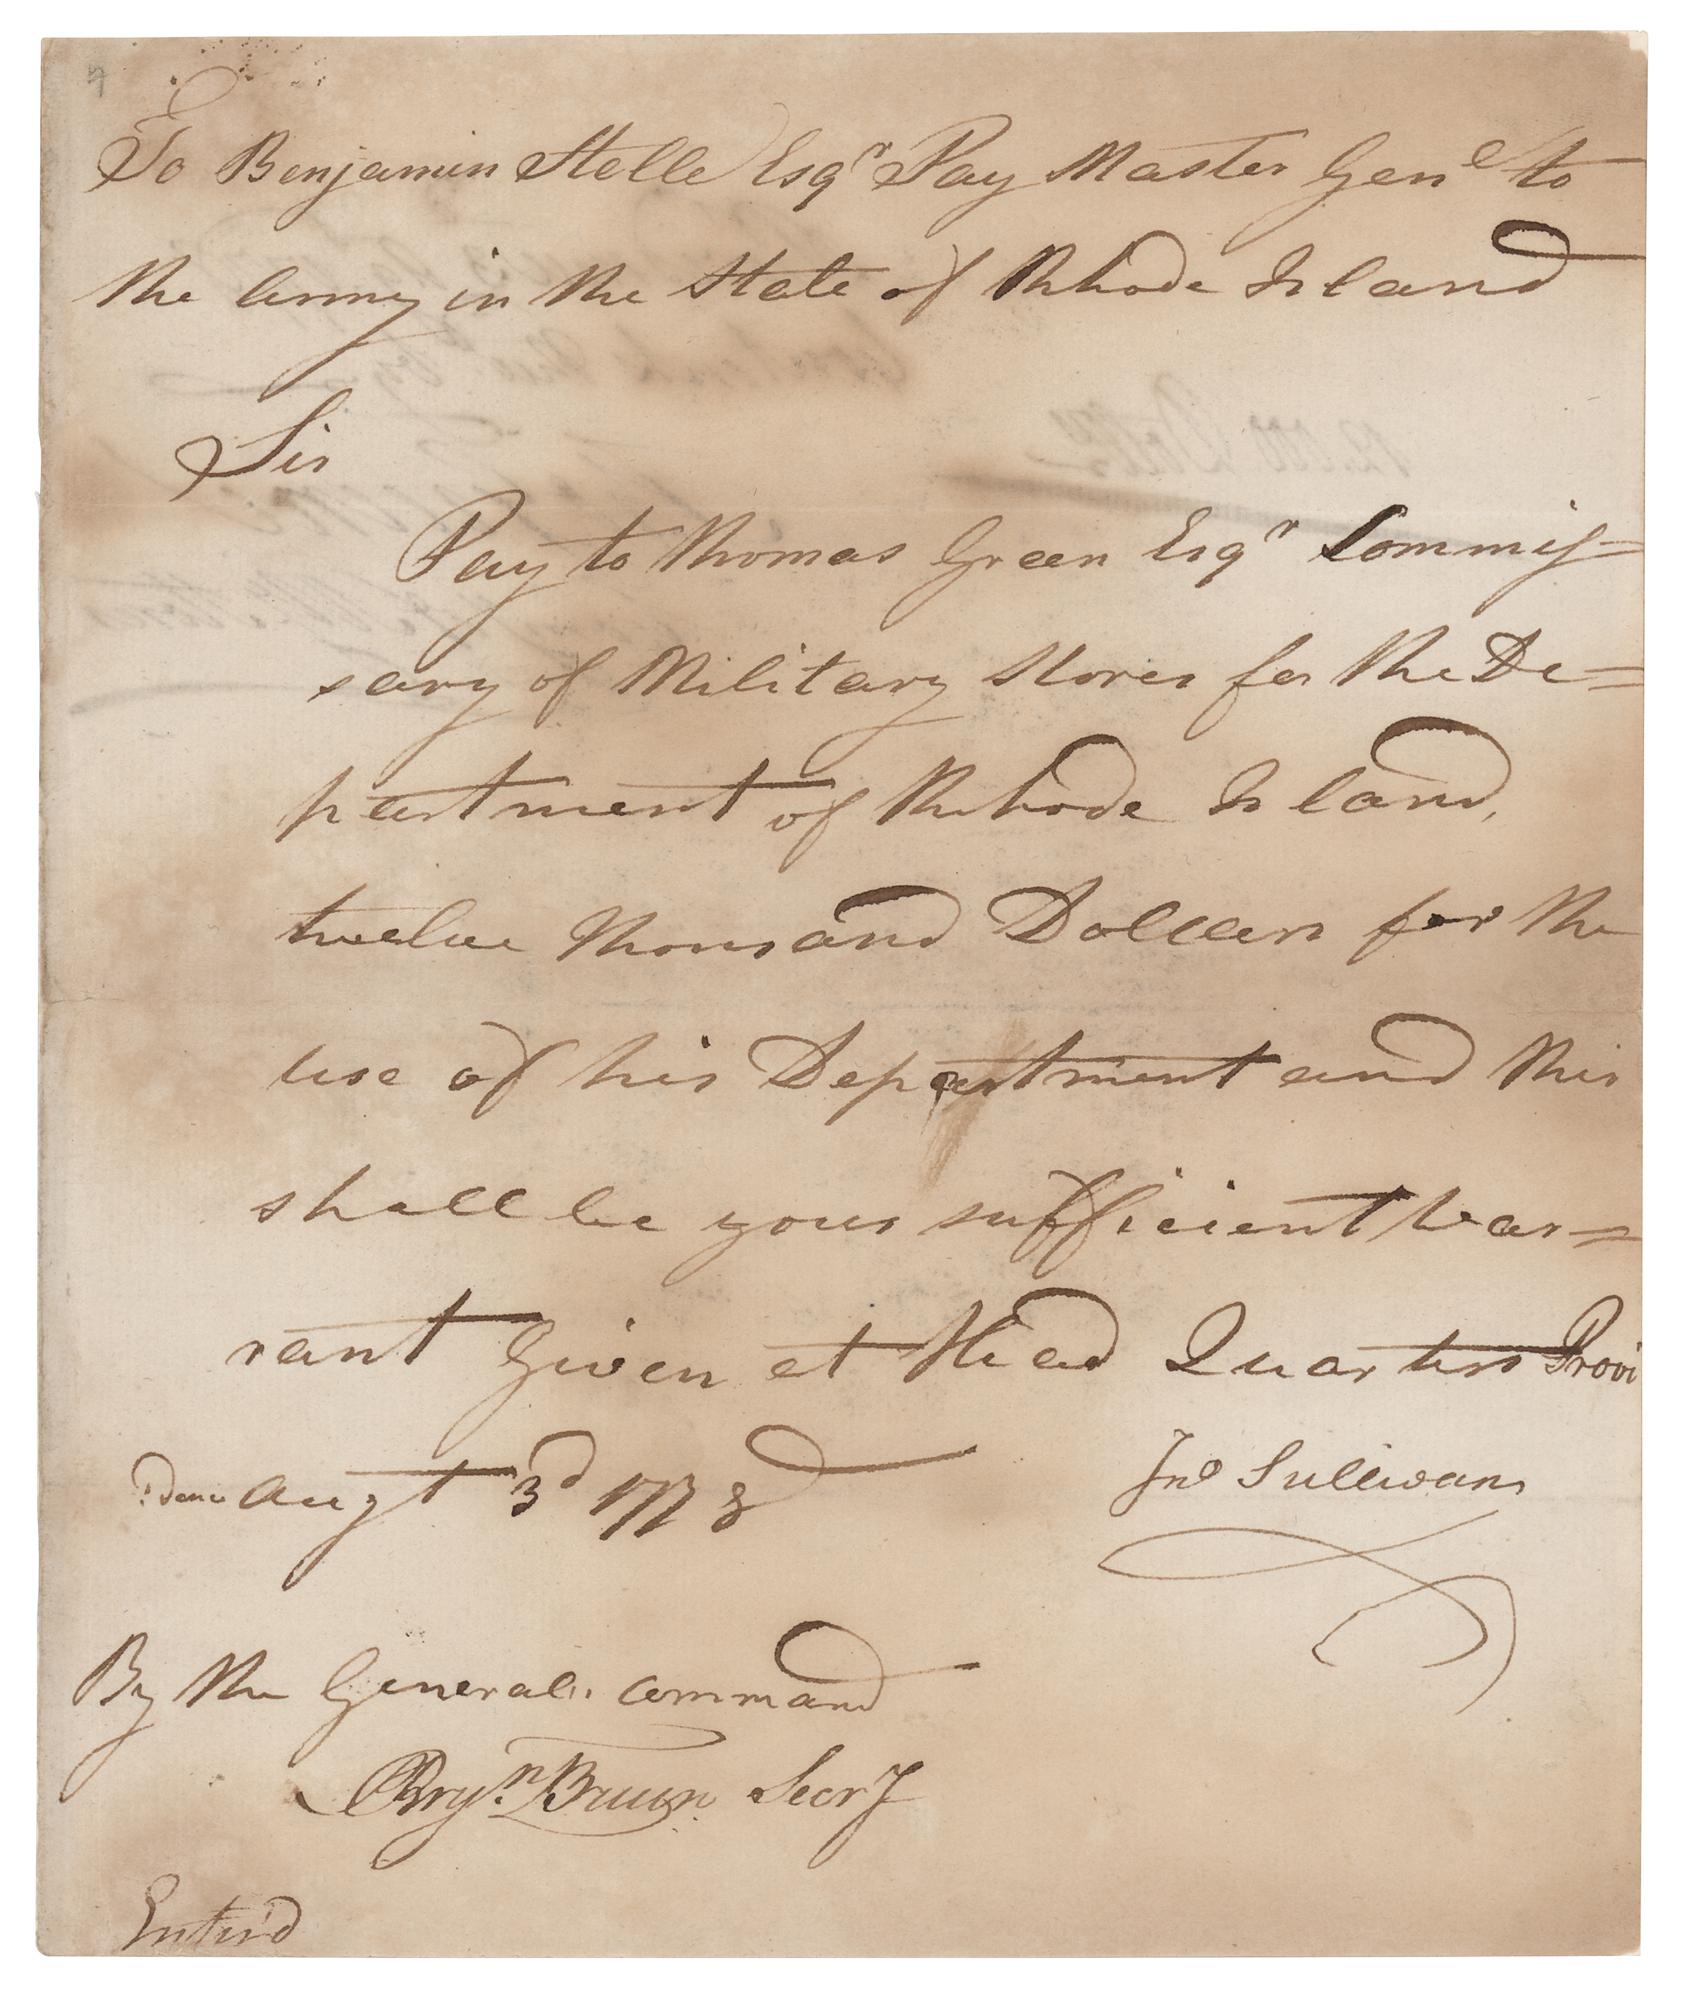 To Benjamin Stelle Esqr Pay Master Genl to
the Army in the State of Rhode Island
Sir
Pay to Thomas Green Esqr Commis=
sary of Military Stores for the De=
partment of Rhode Island,
twelve thousand Dollars for the
use of his Department and this
shall be your sufficient War=
rant Given at Head Quarters Provi
dence Augt 3d 1778
Jno Sullivan
By the Generals command
Bruin Secry
Enter'd
12.000 Dolls